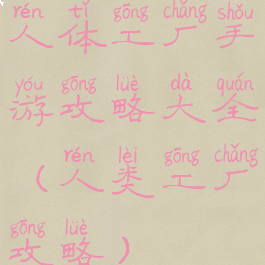 rén tǐ gōng chǎng shǒu
人体工厂手
yóu gōng lüè dà quán
游攻略大全
rén lèi gōng chǎng
（人类工厂
gōng lüè
攻略）